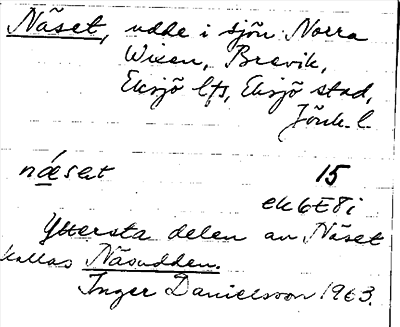 Näset, udde i sjön Norra
Wixen, Brevik,
Eksjö lfs, Eksjö stad,
Jönk. l.
næ̂sat 15
ek 6E8i
Yttersta delen av Näset
kallas Näsudden.
Inger Danielsson 1963.